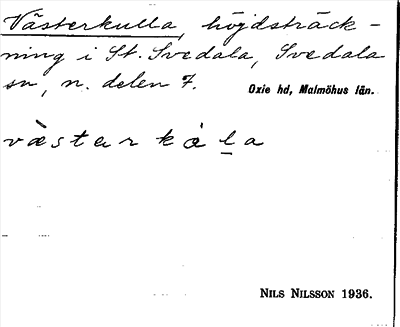 Västerkulla, höjdsträck-
ning i St. Svedala, Svedala
sn, n. delen 7.
Oxie hd, Malmöhus län.
v&#x1CE;̀starkȧl̲a
NILS NILSSON 1936.